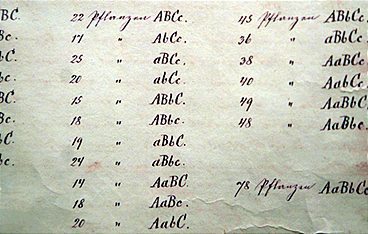 BC. 22 Pflanzen ABCc. 45 Pflanzen ABbCc
17 " AbCc. 36 " aBbCc
25 " aBCc. 38 " AaBCc
20 " abCc. 40 " AabCc
15 " ABbC. 49 " AaBbC
18 " ABbc. 48 " AaBbc.
19 " aBbC.
24 " aBbc.
14 " AaBC. 78 Pflanzen AaBbCc
18 " AaBc.
20 " AabC.